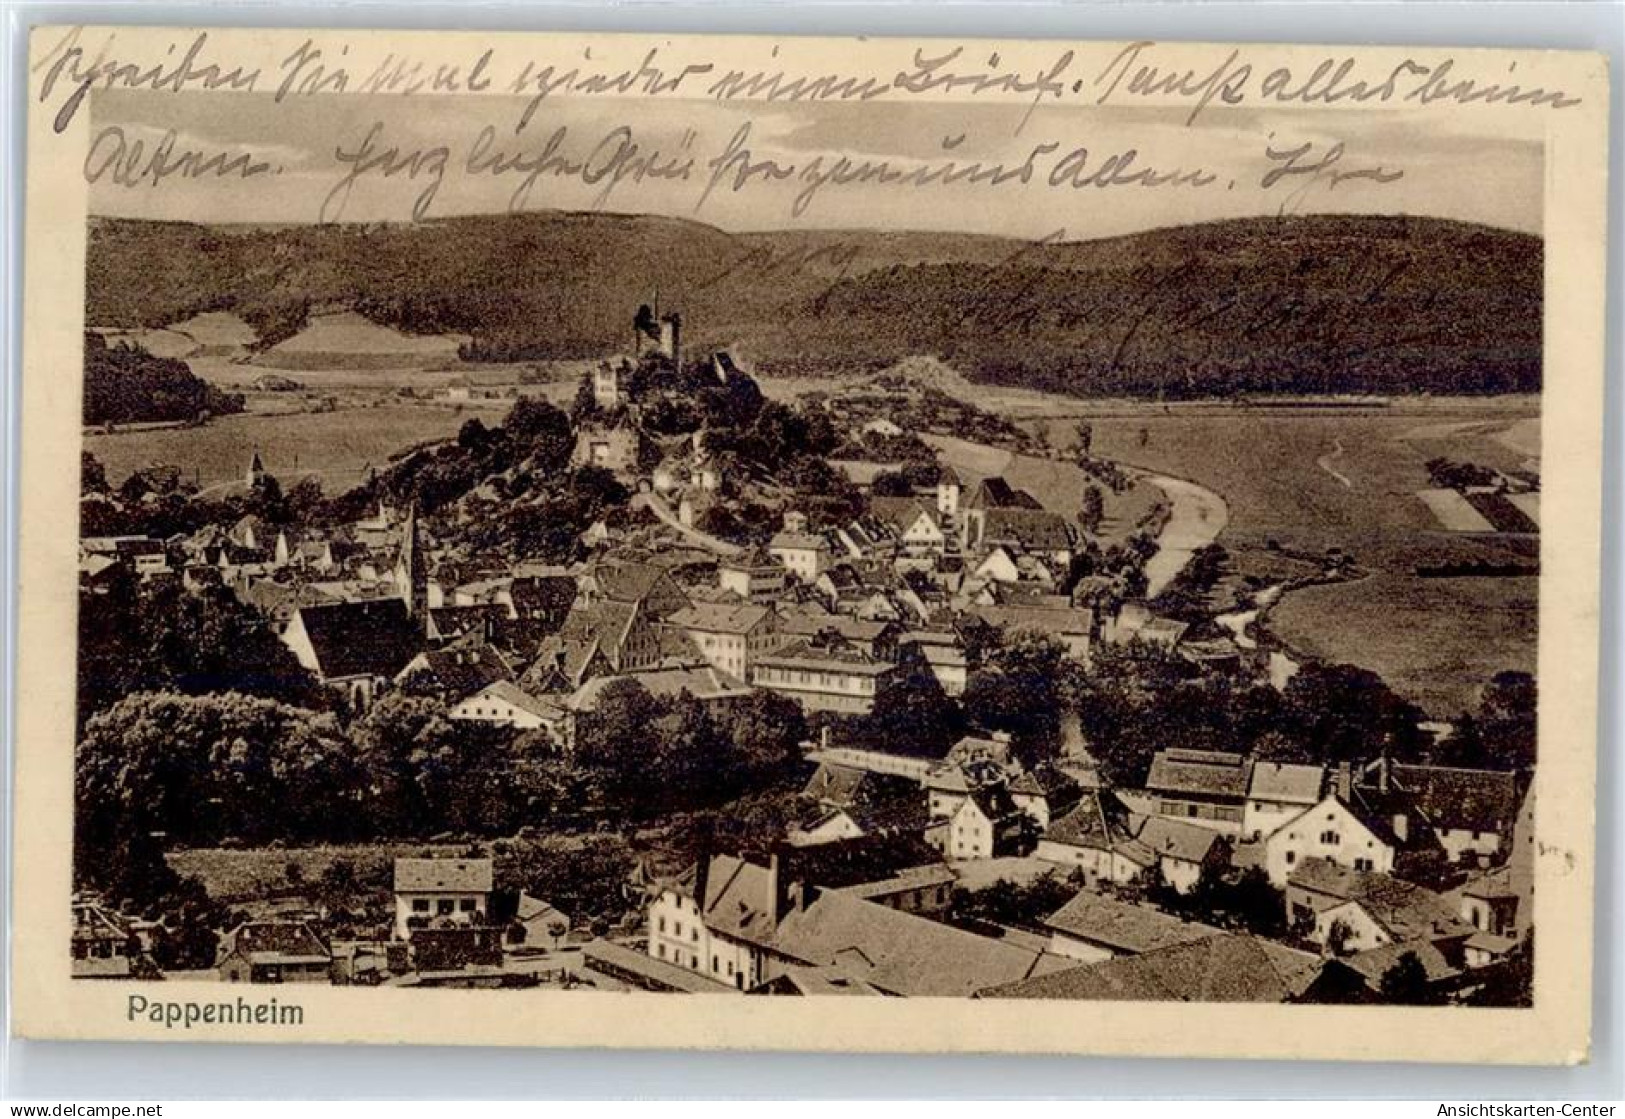 Schreiben Sie Mal wieder einen Brief. Sonst alles beim
Alten. Herzliche Grüße von uns Allen. Ihre
Pappenheim
www.delcampe.net
Ansichtskarten-Center